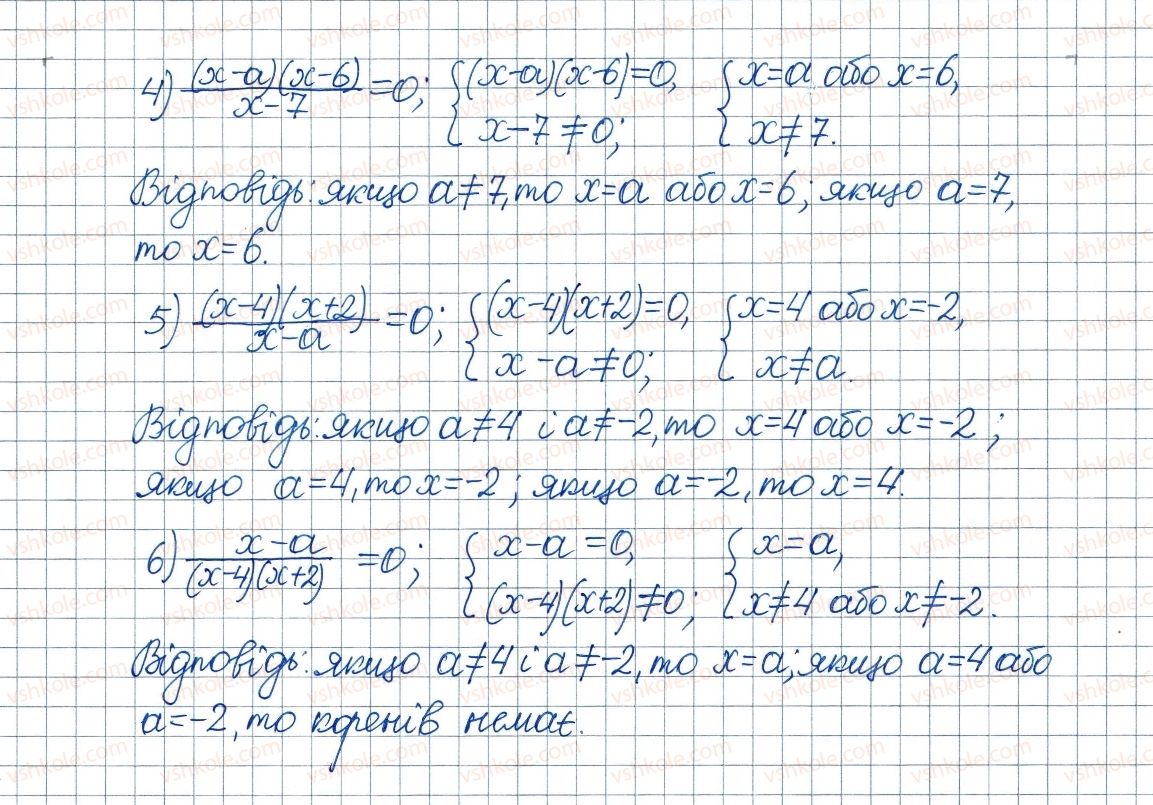 4) (x-a)(x-6)/(x-7) = 0; { (x-a)(x-6)=0, x-7≠0; { x=a або x=6, x≠7.
Відповідь: якщо a≠7, то x=a або x=6; якщо a=7,
то x=6.
5) (x-4)(x+2)/(x-a) = 0; { (x-4)(x+2)=0, x-a≠0; { x=4 або x=-2, x≠a.
Відповідь: якщо a≠4 і a≠-2, то x=4 або x=-2;
якщо a=4, то x=-2; якщо a=-2, то x=4.
6) (x-a)/((x-4)(x+2)) = 0; { x-a=0, (x-4)(x+2)≠0; { x=a, x≠4 або x≠-2.
Відповідь: якщо a≠4 і a≠-2, то x=a; якщо a=4 або
a=-2, то коренів немає.
vshkole.com